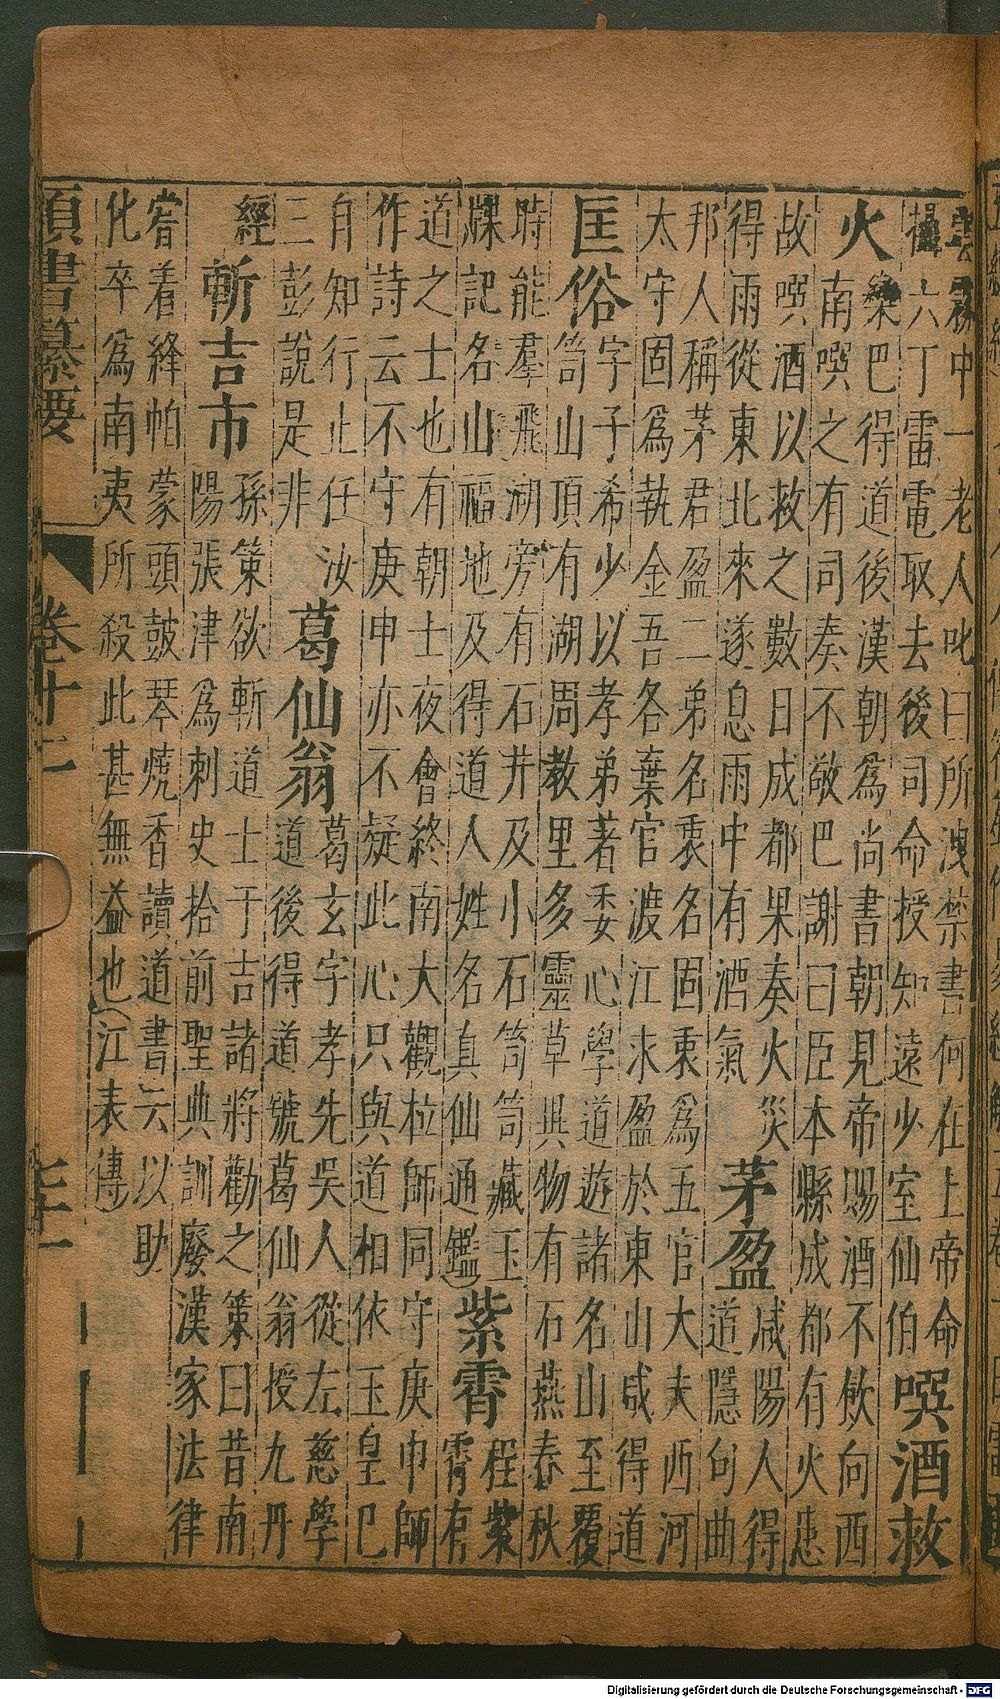 雲霧中一老人叱曰所洩禁書何在上帝命
攝六丁雷電取去後司命授知遠少室仙伯
噀酒救
火
欒巴得道後漢朝爲尚書朝見帝賜酒不飲向西
南噀之有司奏不敬巴謝曰臣本縣成都有火患
故噀酒以救之數日成都果奏火災
得雨從東北來遂息雨中有酒氣
茅盈
咸陽人得
道隱句曲
邦人稱茅君盈二弟名衷名固衷爲五官大夫西河
太守固爲執金吾各棄官渡江求盈於東山咸得道
匡俗
字子希少以孝弟著委心學道遊諸名山至覆
笥山頂有湖周数里多靈草異物有石燕春秋
時能羣飛湖旁有石井及小石笥笥藏玉
牒記名山福地及得道人姓名真仙通鑑)
紫霄
程紫
霄有
道之士也有朝士夜會終南大觀拉師同守庚申師
作詩云不守庚申亦不疑此心只與道相依玉皇已
自知行止任汝
三彭說是非
葛仙翁
葛玄字孝先吳人從左慈學
道後得道號葛仙翁授九丹
經
斬吉市
孫策欲斬道士于吉諸將勸之策曰昔南
陽張津爲刺史拾前聖典訓廢漢家法律
嘗着絳帕蒙頭鼓琴燒香讀道書云以助
化卒爲南夷所殺此甚無益也(江表傳)
類書纂要
卷十二
七十一
Digitalisierung gefördert durch die Deutsche Forschungsgemeinschaft - DFG